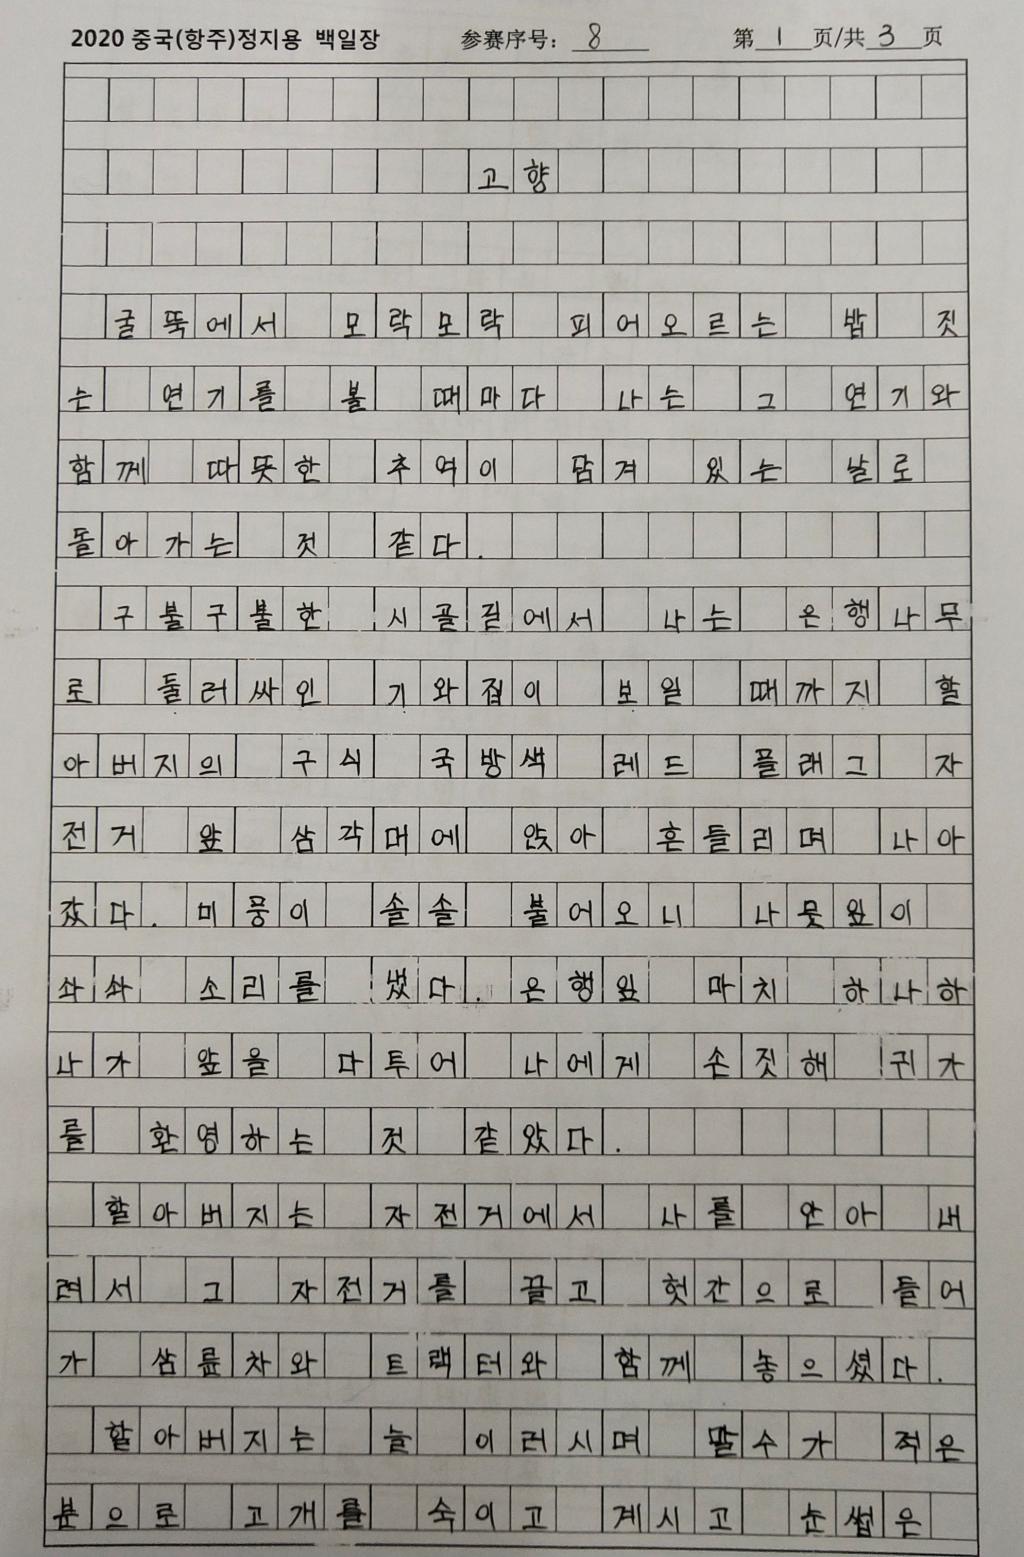 2020 중국(항주)정지용 백일장 参赛序号: 8 第 1 页/共 3 页
고향
굴뚝에서 모락모락 피어오르는 밥 짓
는 연기를 볼 때마다 나는 그 연기와
함께 따뜻한 추억이 담겨 있는 날로
돌아가는 것 같다.
구불구불한 시골길에서 나는 은행나무
로 둘러싸인 기와집이 보일 때까지 할
아버지의 구식 국방색 레드 플래그 자
전거 앞 삼각대에 앉아 흔들리며 나아
갔다. 미풍이 솔솔 불어오니 나뭇잎이
솨솨 소리를 냈다. 은행잎 마치 하나하
나가 앞을 다투어 나에게 손짓해 귀가
를 환영하는 것 같았다.
할아버지는 자전거에서 나를 안아 내
려서 그 자전거를 끌고 헛간으로 들어
가 삼륜차와 트랙터와 함께 놓으셨다.
할아버지는 늘 이러시며 말수가 적은
분으로 고개를 숙이고 계시고 눈썹은